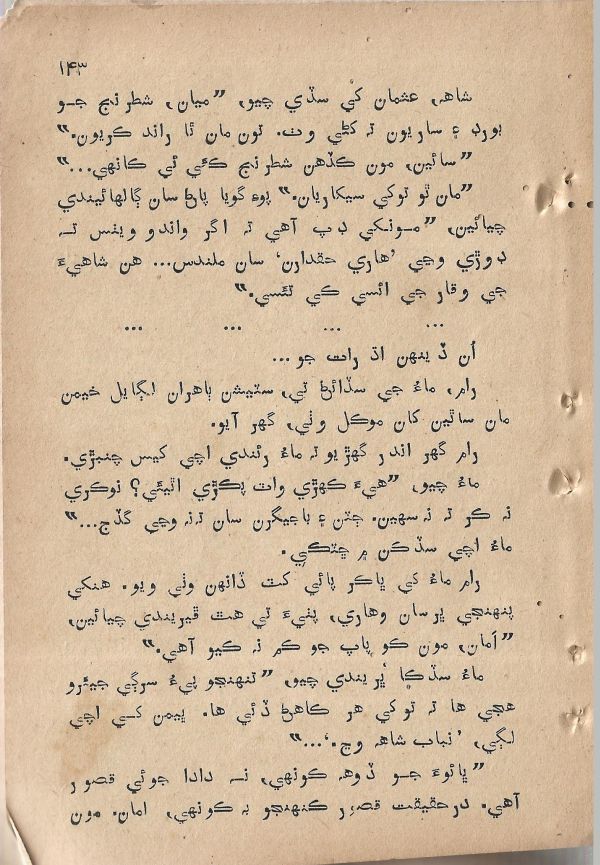 ۱۴۳
شاهه، عثمان کي سڏي چيو، ”ميان، شطرنج جو
بورڊ ۽ ساريون ته کڻي وٺ. تون مان ٿا راند ڪريون.“
”سائين، مون ڪڏهن شطرنج ڪئي ئي ڪانهي...“
”مان ٿو توکي سيکاريان.“ پوءِ گويا پاڻ سان ڳالهائيندي
چيائين، ”مونکي ڊپ آهي ته اگر واندو ويٺس ته
ڊوڙي وڃي ’هاري حقدارن‘ سان ملندس... هن شاهيءَ
جي وقار جي ائسي کي تئسي.“
... ... ... ...
اُن ڏينهن اڌ رات جو...
رام، ماءُ جي سڏائڻ تي، سٽيشن ٻاهران لڳايل خيمن
مان ساٿين کان موڪل وٺي، گهر آيو.
رام گهر اندر گهڙيو ته ماءُ رئندي اچي کيس چنبڙي.
ماءُ چيو، ”هيءَ ڪهڙي واٽ پڪڙي اٿيئي؟ نوڪري
نه ڪر ته نه سهين. جٽن ۽ باجيگرن سان ته نه وڃي گڏج...“
ماءُ اچي سڏڪن ۾ ڇٽڪي.
رام ماءُ کي ڀاڪر پائي کٽ ڏانهن وٺي ويو. هنکي
پنهنجي ڀرسان وهاري، پٺيءَ تي هٿ ڦيريندي چيائين،
”اَمان، مون ڪو پاپ جو ڪم نه ڪيو آهي.“
ماءُ سڏڪا ڀريندي چيو، ”تنهنجو پيءُ سرڳي جيئرو
هجي ها ته توکي هر ڪاهڻ ڏئي ها. ڀيمن کي اچي
لڳي، ’نباب شاهه وڃ.‘...“
”ڀائوءَ جو ڏوهه ڪونهي، نه دادا جوئي قصور
آهي. درحقيقت قصور ڪنهنجو به ڪونهي، امان. مون